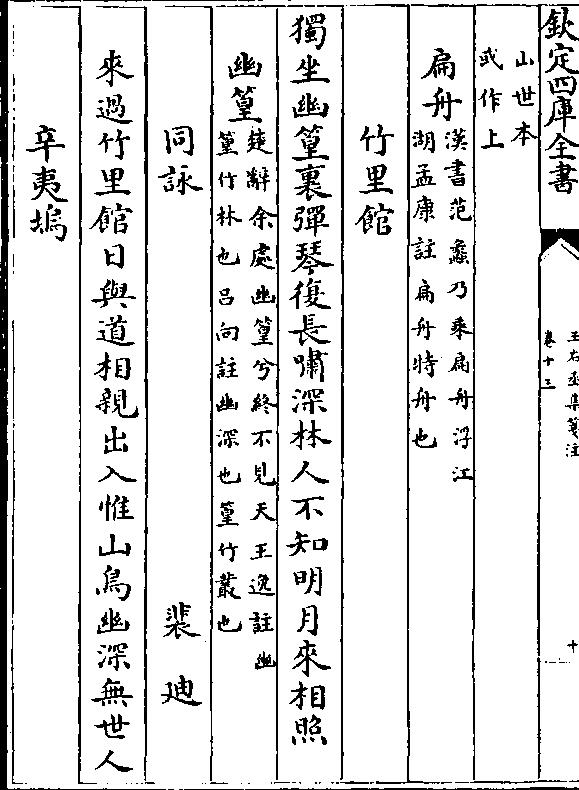 欽定四庫全書
王右丞集箋注
卷十三
十
山世本
或作上
扁舟
漢書范蠡乃乘扁舟浮江
湖孟康註扁舟特舟也
竹里館
獨坐幽篁裏彈琴復長嘯深林人不知明月來相照
幽篁
楚辭余處幽篁兮終不見天王逸註幽
篁竹林也呂向註幽深也篁竹叢也
同詠
裴廸
來過竹里館日與道相親出入惟山鳥幽深無世人
辛夷塢